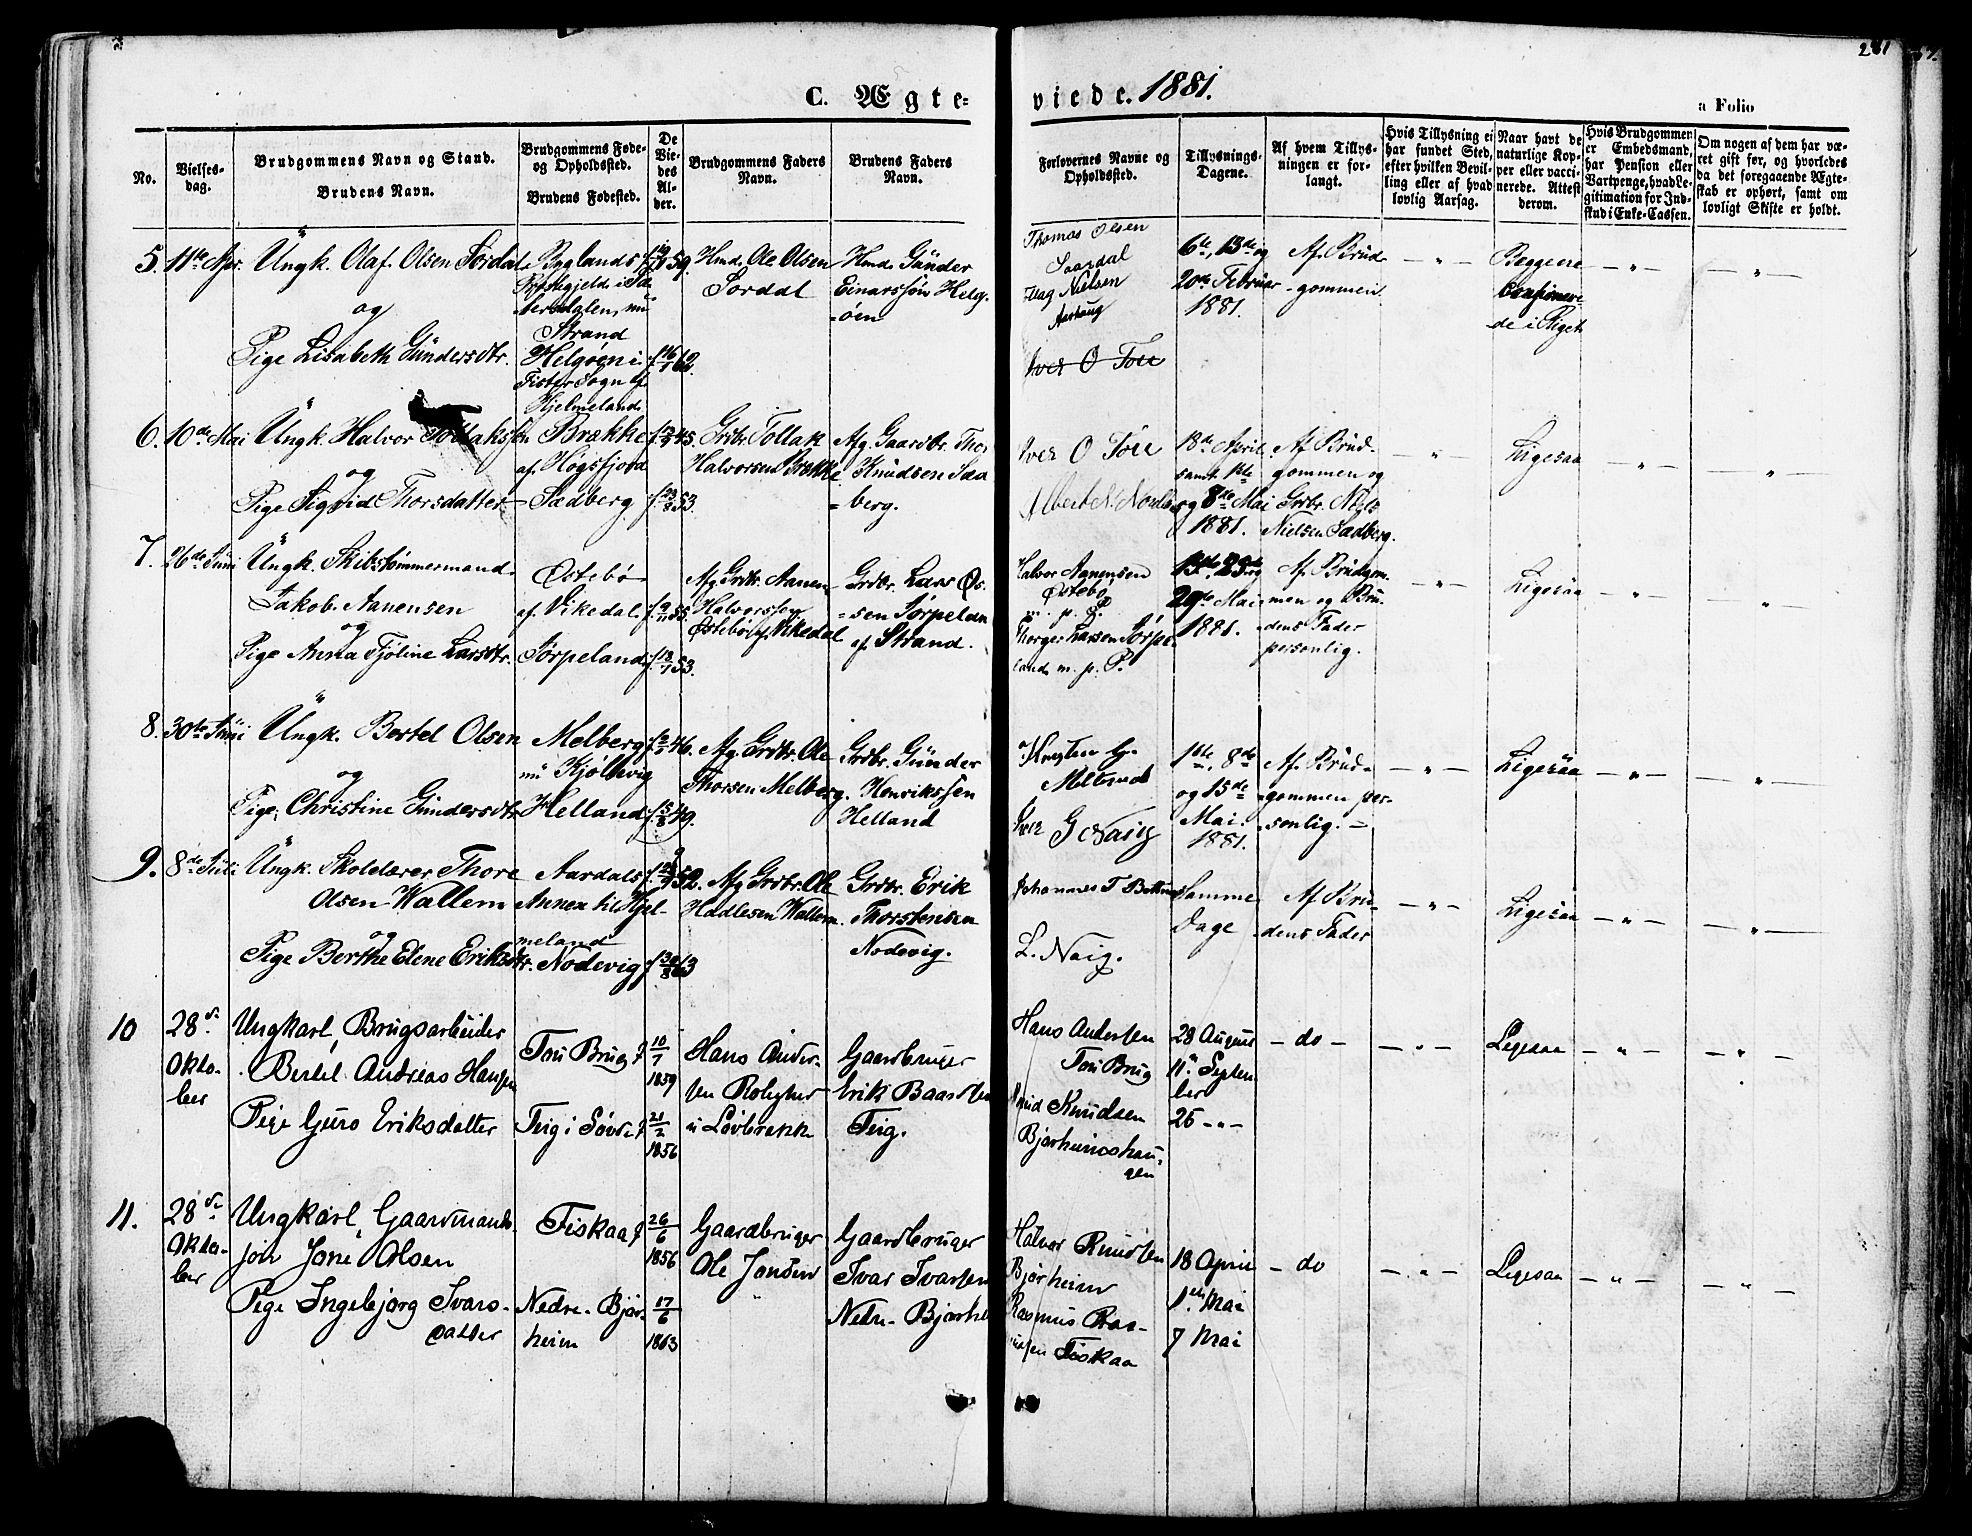 281
C. Ægte-
viede. 1881.
a Folio
No.
Vielses-
dag.
Brudgommens Navn og Stand.
Brudens Navn.
Brudgommens Føde-
og Opholdssted.
Brudens Fødested.
De
Vie-
des
Al-
der.
Brudgommens Faders
Navn.
Brudens Faders
Navn.
Forlovernes Navne og
Opholdssted.
Tillysnings-
Dagene.
Af hvem Tillys-
ningen er for-
langt.
Hvis Tillysning ei
har fundet Sted,
efter hvilken Bevil-
ling eller af hvad
lovlig Aarsag.
Naar havt de
naturlige Kop-
per eller vacci-
nerede. Attest
derom.
Hvis Brudgommen
er Embedsmand,
har Pension eller
Vartpenge, hvad Le-
gitimation for Ind-
skud i Enke-Cassen.
Om nogen af dem har væ-
ret gift før, og hvorledes
da det foregaaende Ægte-
skab er ophørt, samt om
lovligt Skifte er holdt.
5. 11te Apr. Ungk. Olaf Olsen Sordal
og
Pige Lisabeth Gundersdtr.
Byglands
Præstegjeld i Sæ-
tersdalen, nu
Strand
Helgøen i
Fister Sogn af
Hjelmeland
59.
f. 16/1 62.
Hmd. Ole Olsen
Sordal
Hmd. Gunder
Einarssøn Helg-
øen
Thomas Olsen
Soardal
Dag Nielsen
Aarhaug
Iver O Tou
6te, 13de og
20de Februar
1881.
Af Brud-
gommen
— „ —
Beggere
confirmere-
de i Riget
— „ —
— „ —
6. 10de Mai Ungk. Halvor Tollaksen
og
Pige Sigrid Thorsdatter
Brække
af Høgsfjord
Sædberg
45.
53.
Grdbr. Tollak
Halvorsen Brække
Afg. Gaardbr. Thor
Knudsen Sæd-
berg.
Iver O Tou
Albert N.
18de April
samt 1ste
og 8de Mai
1881.
Af Brud-
gommen og
Grbr. Niels
Nielsen Sædberg.
— „ —
Ligesaa
— „ —
— „ —
7. 26de Juni Ungk. Skibstømmermand
Jakob Aanensen
og
Pige Anna Tjøline Larsdtr.
Østebø
af Vikedal
Jørpeland
f. 9/11 55.
f. 13/1 53.
Afg. Grdbr. Aanen
Halvorsen
Østebø af Vikedal
Grdbr. Lars Ol-
sen Jørpeland
af Strand.
Halvor Aanensen
Østebø
m. p. P.
Thorger Larsen Jørpe-
land m. p. P.
15de, 23de og
29de Mai
1881.
Af Brudgom-
men og Bru-
dens Fader
personlig.
— „ —
Ligesaa
— „ —
— „ —
8. 30te Juni Ungk. Bertel Olsen
og
Pige, Christine Gundersdtr
Melberg
nu Kjøllevig
Helland
46.
f. 15/8 49.
Afg. Grdbr. Ole
Thorsen Melberg.
Grdbr. Gunder
Henrikssen
Helland
Meltved
Iver G Naig
1ste, 8de
og 15de
Mai.
1881.
Af Brud-
gommen per-
sonlig. —
— „ —
Ligesaa
— „ —
— „ —
9. 8de Juli Ungk. Skolelærer Thore
Olsen Wallem
og
Pige Berthe Elene Eriksdtr.
Aardals
Annex til Hjel-
meland
Nodevig
52.
63
Afg. Grdbr. Ole
Hadlesen Wallem.
Grdbr. Erik
Thorstensen
Nodevig.
Johannes T
L. Naig.
Samme
Dage
Af Bru-
dens Fader
— „ —
Ligesaa
— „ —
— „ —
10 28de
Okto-
ber
Ungkarl, Brugsarbeider
Bertel Andreas Hansen
Pige Guro Eriksdatter
Tou Brug
Teig i Søvde
f 10/7
1859
f 21/2
1856
Hans Ander-
sen Rolighed
i Løvbrække
Gaardbruger
Erik Baardsen
Teig.
Hans Andersen
Tou Brug
Knudsen
Bjørheimshau-
gen
28 August
11te Septem-
ber
25 „
— do —
— „ —
Ligesaa
— „ —
— „ —
11. 28de
Okto-
ber
Ungkarl, Gaardmands-
søn Jone Olsen
Pige Ingebjørg Ivars-
datter
Fiskaa
Nedre-Bjør-
heim
f 26/6
1856
17/6
1863
Gaardbruger
Ole Jonsen
Gaardbruger
Ivar Ivarsen
Nedre-Bjørhei
Halvor Knudsen
Bjørheim
Rasmus Ras-
mussen Fiskaa
18 April
1ste Mai
7 Mai
— do
— „ —
Ligesaa
— „ —
— „ —